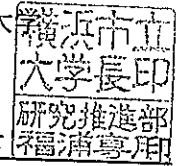 大学
横浜市立
大学長印
研究推進部
福浦専用